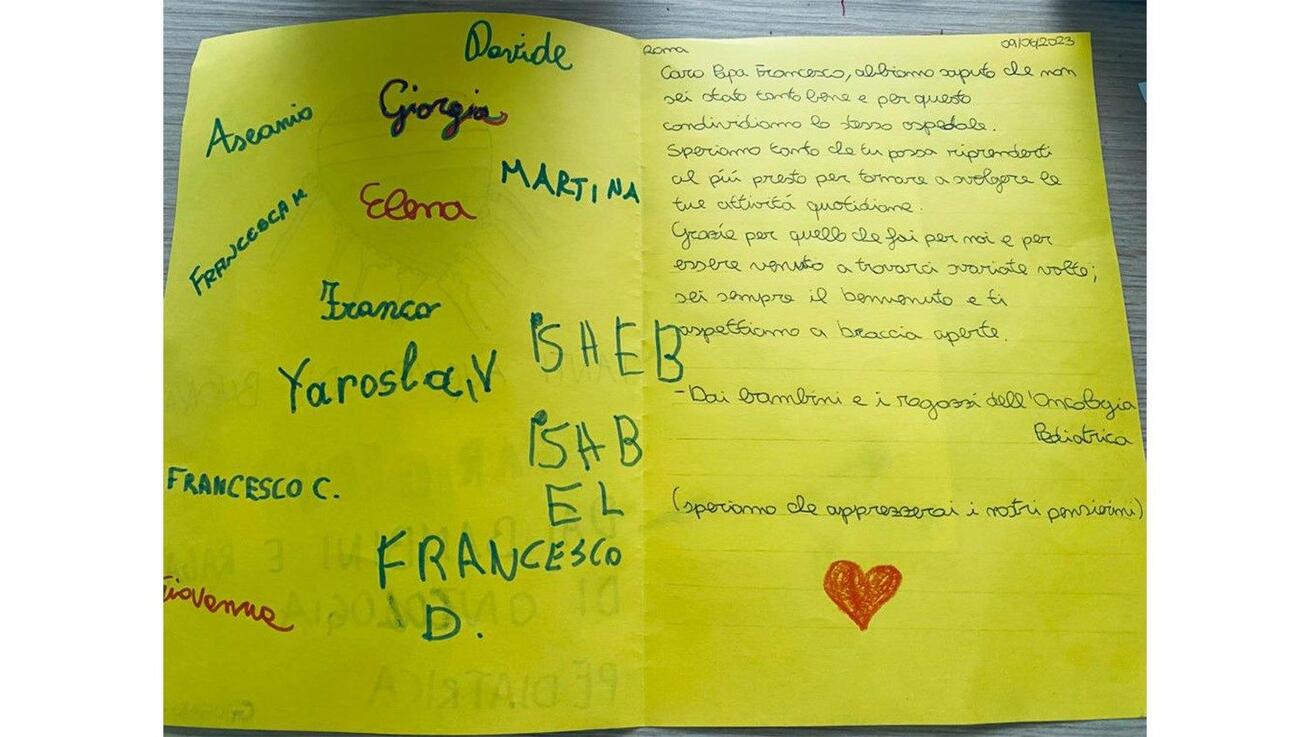 Davide
Giorgia
Ascanio
MARTINA
Elena
FRANCESCA M
Franco
ISHEB
Yarosla,V
ISAB
EL
FRANCESCO C.
FRANCESCO
D.
Giovanna
Roma 09/06/2023
Caro Papa Francesco, abbiamo saputo che non
sei stato tanto bene e per questo
condividiamo lo stesso ospedale.
Speriamo tanto che tu possa riprenderti
al piú presto per tornare a svolgere le
tue attivitá quotidiane.
Grazie per quello che fai per noi e per
essere venuto a trovarci svariate volte;
sei sempre il benvenuto e ti
aspettiamo a braccia aperte.
-Dai bambini e i ragazzi dell'Oncologia
Pediatrica
(speriamo che apprezzerai i nostri pensierini)